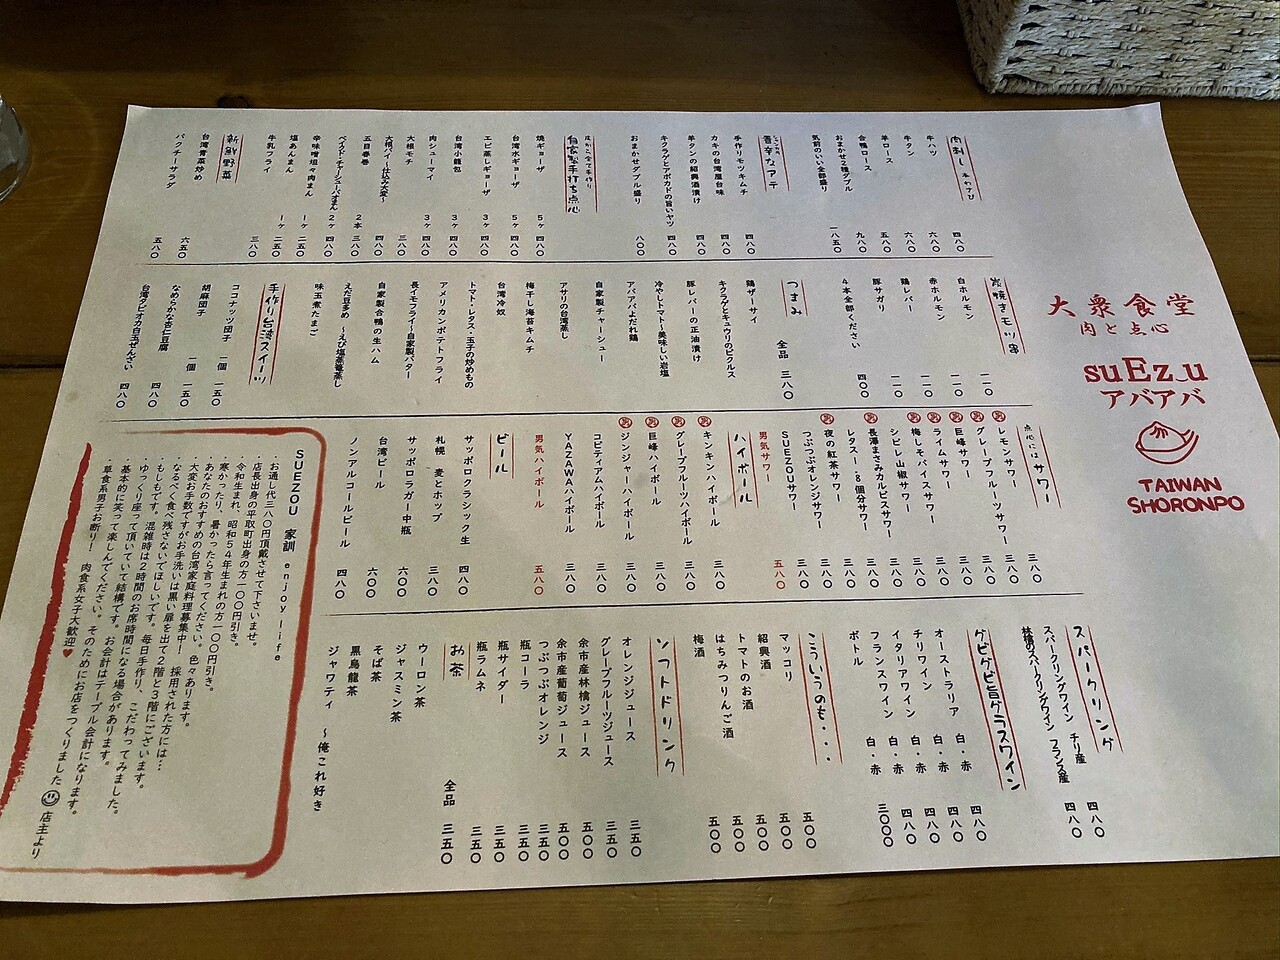 大衆食堂
肉と点心
suEz_u
アバアバ
TAIWAN
SHORONPO
肉刺し 本わさび
牛ハツ 四八〇
牛タン 六八〇
羊ロース 六八〇
合鴨ロース 五八〇
おまかせ2種ダブル 九八〇
気前のいい全部盛り 一八五〇
手作りモツキムチ 四八〇
カキの台湾屋台味 四八〇
羊タンの紹興酒漬け 四八〇
キクラゲとアボカドの旨いヤツ 四八〇
おまかせダブル盛り 八〇〇
皮から全て手作り
自家製手打ち点心
焼ギョーザ 5ヶ 四八〇
台湾水ギョーザ 5ヶ 四八〇
エビ蒸しギョーザ 3ヶ 四八〇
台湾小籠包 3ヶ 四八〇
肉シューマイ 3ヶ 四八〇
大根モチ 三八〇
大根パイ〜仕込み大変〜 四八〇
五目春巻 2本 三八〇
ベイクド・チャーシューバオまん 2ヶ 四八〇
辛味噌坦々肉まん 1ヶ 二五〇
塩あんまん 1ヶ 二五〇
牛乳フライ 三八〇
新鮮野菜
台湾青菜炒め 六五〇
パクチーサラダ 五八〇
炭焼きモツ串
白ホルモン 一一〇
赤ホルモン 一一〇
鶏レバー 一一〇
豚サガリ 一一〇
4本全部ください 四〇〇
つまみ 全品 三八〇
鶏ザーサイ
キクラゲとキュウリのピクルス
豚レバーの正油漬け
冷やしトマト〜美味しい岩塩
アバアバよだれ鶏
自家製チャーシュー
アサリの台湾蒸し
梅干し海苔キムチ
台湾冷奴
トマト・レタス・玉子の炒めもの
アメリカンポテトフライ
長イモフライ〜自家製バター
自家製合鴨の生ハム
えだ豆多め 〜えび塩蒸籠蒸し
味玉煮たまご
手作り台湾スイーツ
ココナッツ団子 一個 一五〇
胡麻団子 一個 一五〇
なめらかな杏仁豆腐 四八〇
台湾タピオカ白玉ぜんざい 四八〇
点心には サワー
レモンサワー 三八〇
男 グレープフルーツサワー 三八〇
男 巨峰サワー 三八〇
男 ライムサワー 三八〇
男 梅しモバイスサワー 三八〇
シビレ山椒サワー 三八〇
男 長澤まさみカルピスサワー 三八〇
レタスー・8個分サワー 三八〇
男 夜の紅茶サワー 三八〇
つぶつぶオレンジサワー 三八〇
SUEZOUサワー 三八〇
男気サワー 五八〇
ハイボール
男 キンキンハイボール 三八〇
男 グレープフルーツハイボール 三八〇
男 巨峰ハイボール 三八〇
男 ジンジャーハイボール 三八〇
コピティアムハイボール 三八〇
YAZAWAハイボール 三八〇
男気ハイボール 五八〇
ビール
サッポロクラシック生 四八〇
札幌 麦とホップ 三八〇
サッポロラガー中瓶 六〇〇
台湾ビール 六〇〇
ノンアルコールビール 四八〇
スパークリング
スパークリングワイン チリ産 四八〇
林檎のスパークリングワイン フランス産 四八〇
グビグビ旨グラスワイン
オーストラリア 白・赤 四八〇
チリワイン 白・赤 四八〇
イタリアワイン 白・赤 四八〇
フランスワイン 白・赤 四八〇
ボトル 三〇〇〇
こういうのも・・・
マッコリ 五〇〇
紹興酒 五〇〇
トマトのお酒 五〇〇
はちみつりんご酒 五〇〇
梅酒 五〇〇
ソフトドリンク
オレンジジュース 三五〇
グレープフルーツジュース 三五〇
余市産林檎ジュース 五〇〇
余市産葡萄ジュース 五〇〇
つぶつぶオレンジ 三五〇
瓶コーラ 三五〇
瓶サイダー 三五〇
瓶ラムネ 三五〇
お茶 全品 三五〇
ウーロン茶
ジャスミン茶
そば茶
黒烏龍茶
ジャワティ 〜俺これ好き
SUEZOU 家訓 enjoy life
・お通し代三八〇円頂戴させて下さいませ。
・店長出身の平取町出身の方一〇〇円引き。
・令和生まれ、昭和54年生まれの方一〇〇円引き。
・寒かったり、暑かったら言ってください。色々あります。
・あなたのおすすめの台湾家庭料理募集中！ 採用された方には…
・大変お手数ですがお手洗いは黒い扉を出て2階と3階にございます。
・なるべく食べ残さないでほしいです。毎日手作り、こだわってみました。
・もしもです。混雑時は2時間のお席時間になる場合があります。
・ゆっくり座って頂いていて結構です。お会計はテーブル会計になります。
・基本的に笑って楽しんでください。そのためにお店をつくりました
・草食系男子お断り！ 肉食系女子大歓迎♥ 店主より